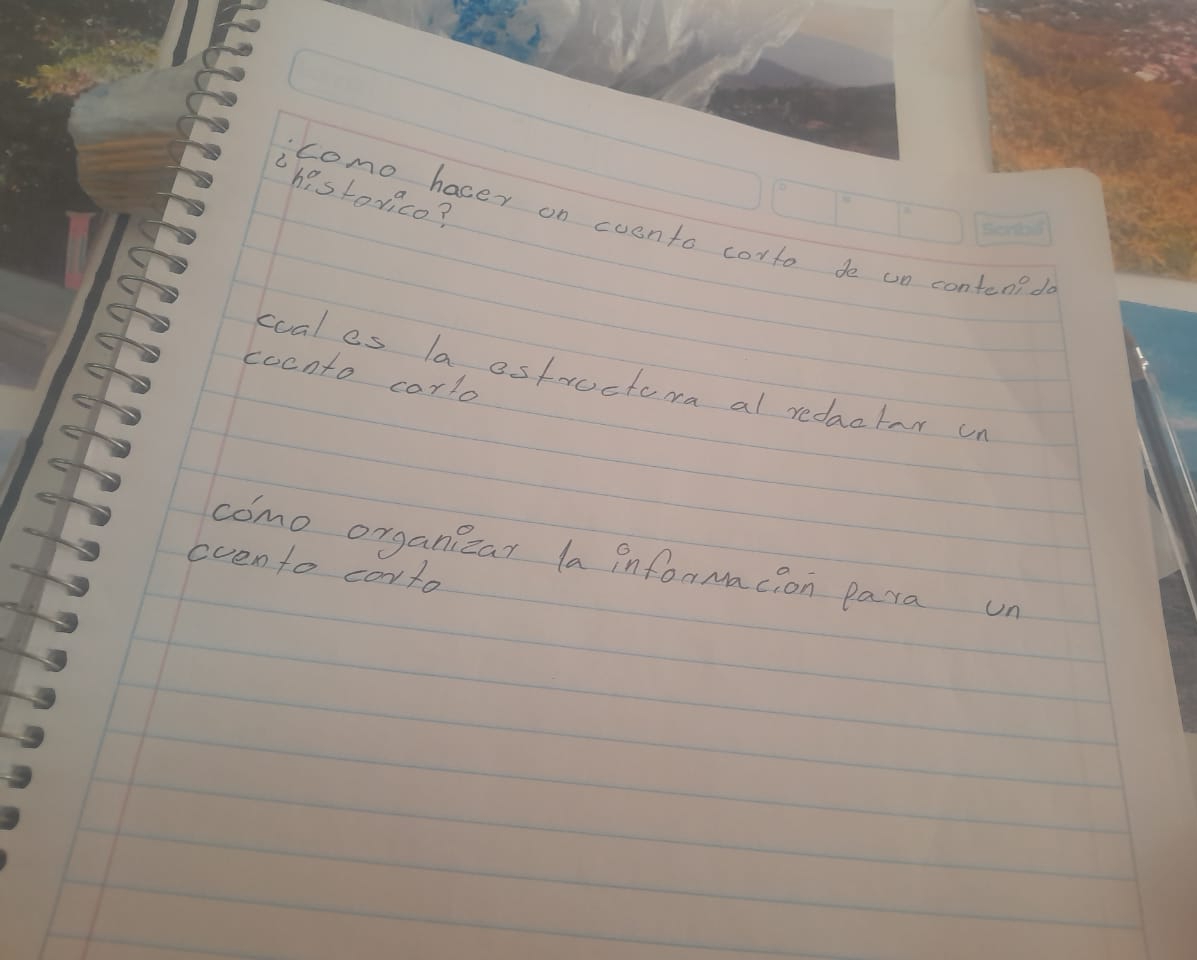 Scribe
¿como hacer un cuento corto de un contenido
historico?
cual es la estructura al redactar un
cuento corto
cómo organizar la información para un
cuento corto